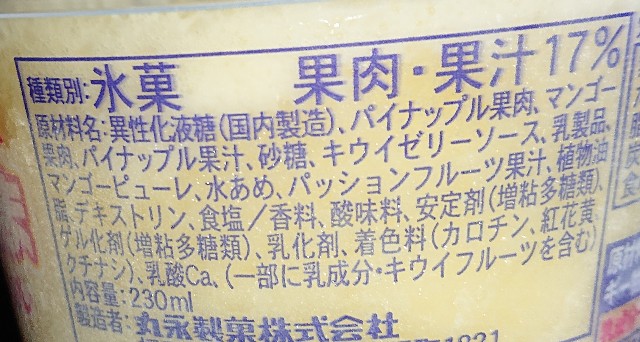 種類別:氷菓 果肉・果汁17%
原材料名:異性化液糖(国内製造)、パイナップル果肉、マンゴー
果肉、パイナップル果汁、砂糖、キウイゼリーソース、乳製品、
マンゴーピューレ、水あめ、パッションフルーツ果汁、植物油
脂、デキストリン、食塩/香料、酸味料、安定剤(増粘多糖類)、
ゲル化剤(増粘多糖類)、乳化剤、着色料(カロチン、紅花黄、
クチナシ)、乳酸Ca、(一部に乳成分・キウイフルーツを含む)
内容量:230ml
製造者:丸永製菓株式会社